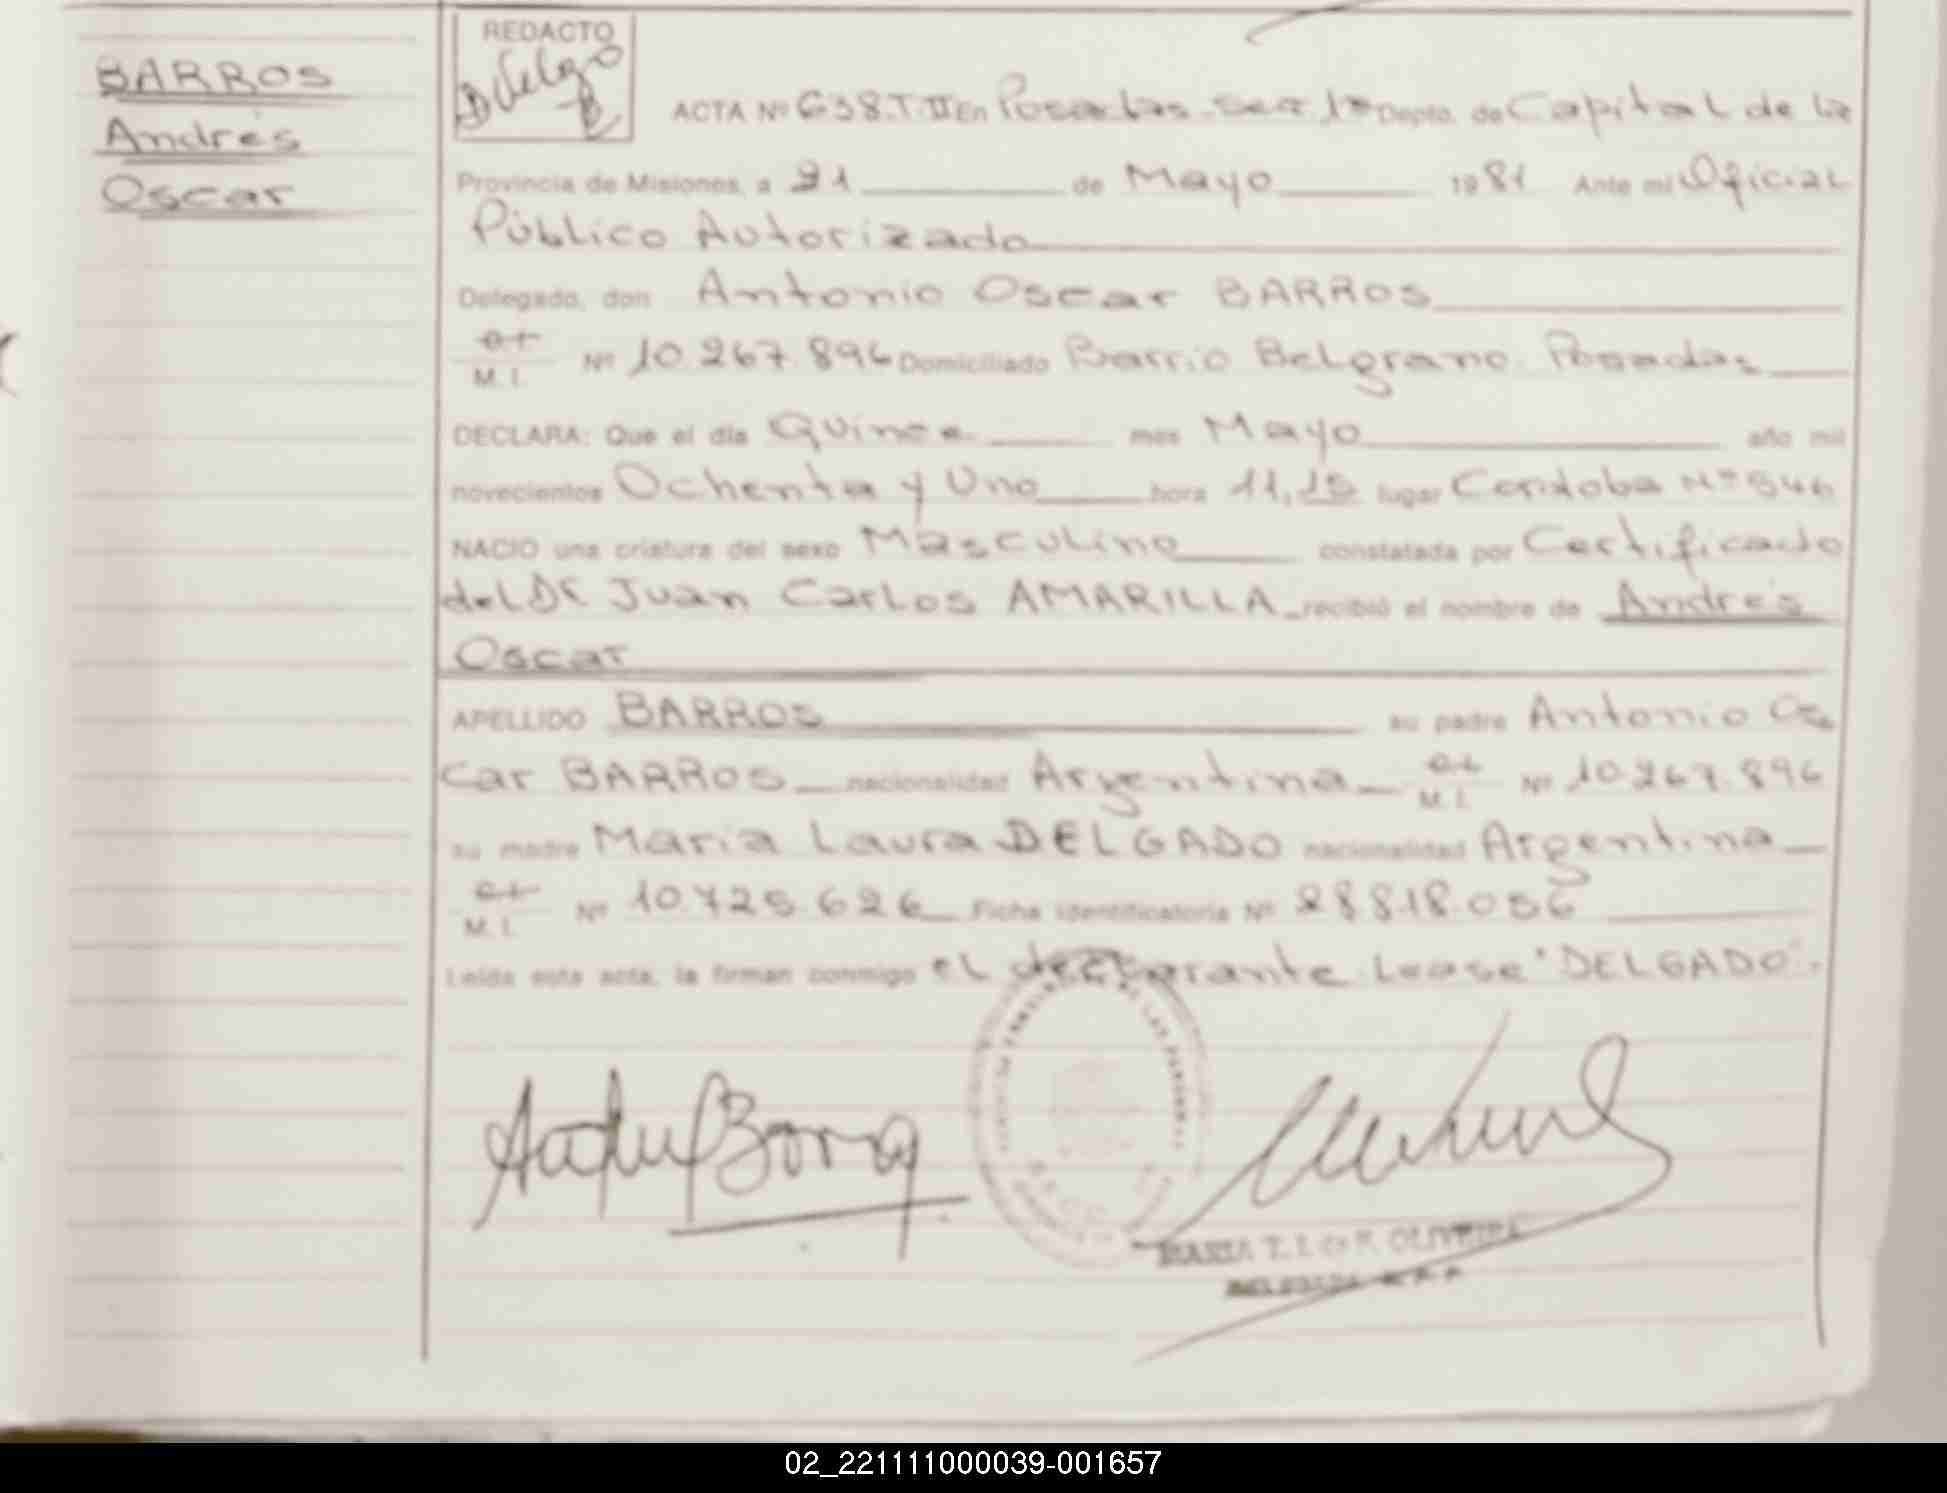 BARROS
Andrés
Oscar
REDACTO
Delgado
ACTA Nº 638.T.II En Posadas. Sec 1ª Depto. de Capital de la
Provincia de Misiones, a 21 de Mayo 1981 Ante mi Oficial
Público Autorizado
Delegado, don Antonio Oscar BARROS
M. I. Nº 10.267.896 Domiciliado Barrio Belgrano. Posadas
DECLARA: Que el día Quince mes Mayo año mil
novecientos Ochenta y Uno hora 11,15 lugar Cordoba Nº 546
NACIO una criatura del sexo Masculino constatada por Certificado
del Dr Juan Carlos AMARILLA recibió el nombre de Andrés
Oscar
APELLIDO BARROS su padre Antonio Os
car BARROS nacionalidad Argentina M. I. Nº 10.267.896
su madre Maria Laura DELGADO nacionalidad Argentina
M. I. Nº 10.725.626 Ficha identificatoria Nº 28.818.056
Leida esta acta, la firman conmigo el declarante. Lease "DELGADO".
OLIVEIRA
02_221111000039-001657